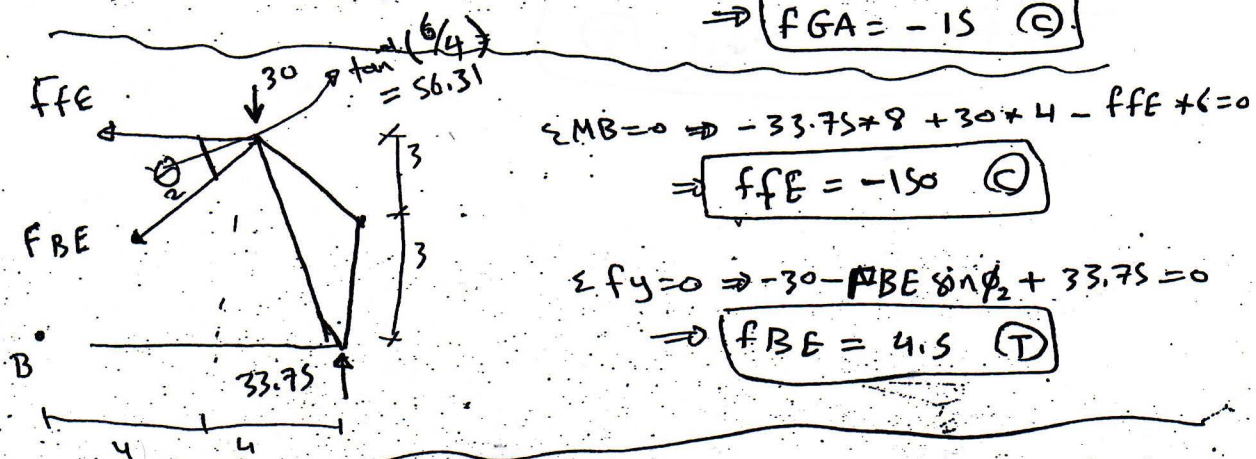 ⇒ fGA = -15 (C)
tan⁻¹(6/4)
= 56.31
30
FfE
Ø2
FBE
3
3
B
33.75
4 4
ΣMB=0 ⇒ -33.75*8 + 30*4 - ffE *6=0
⇒ ffE = -150 (C)
Σfy=0 ⇒ -30-FBE sinØ2 + 33.75=0
⇒ fBE = 4.5 (T)